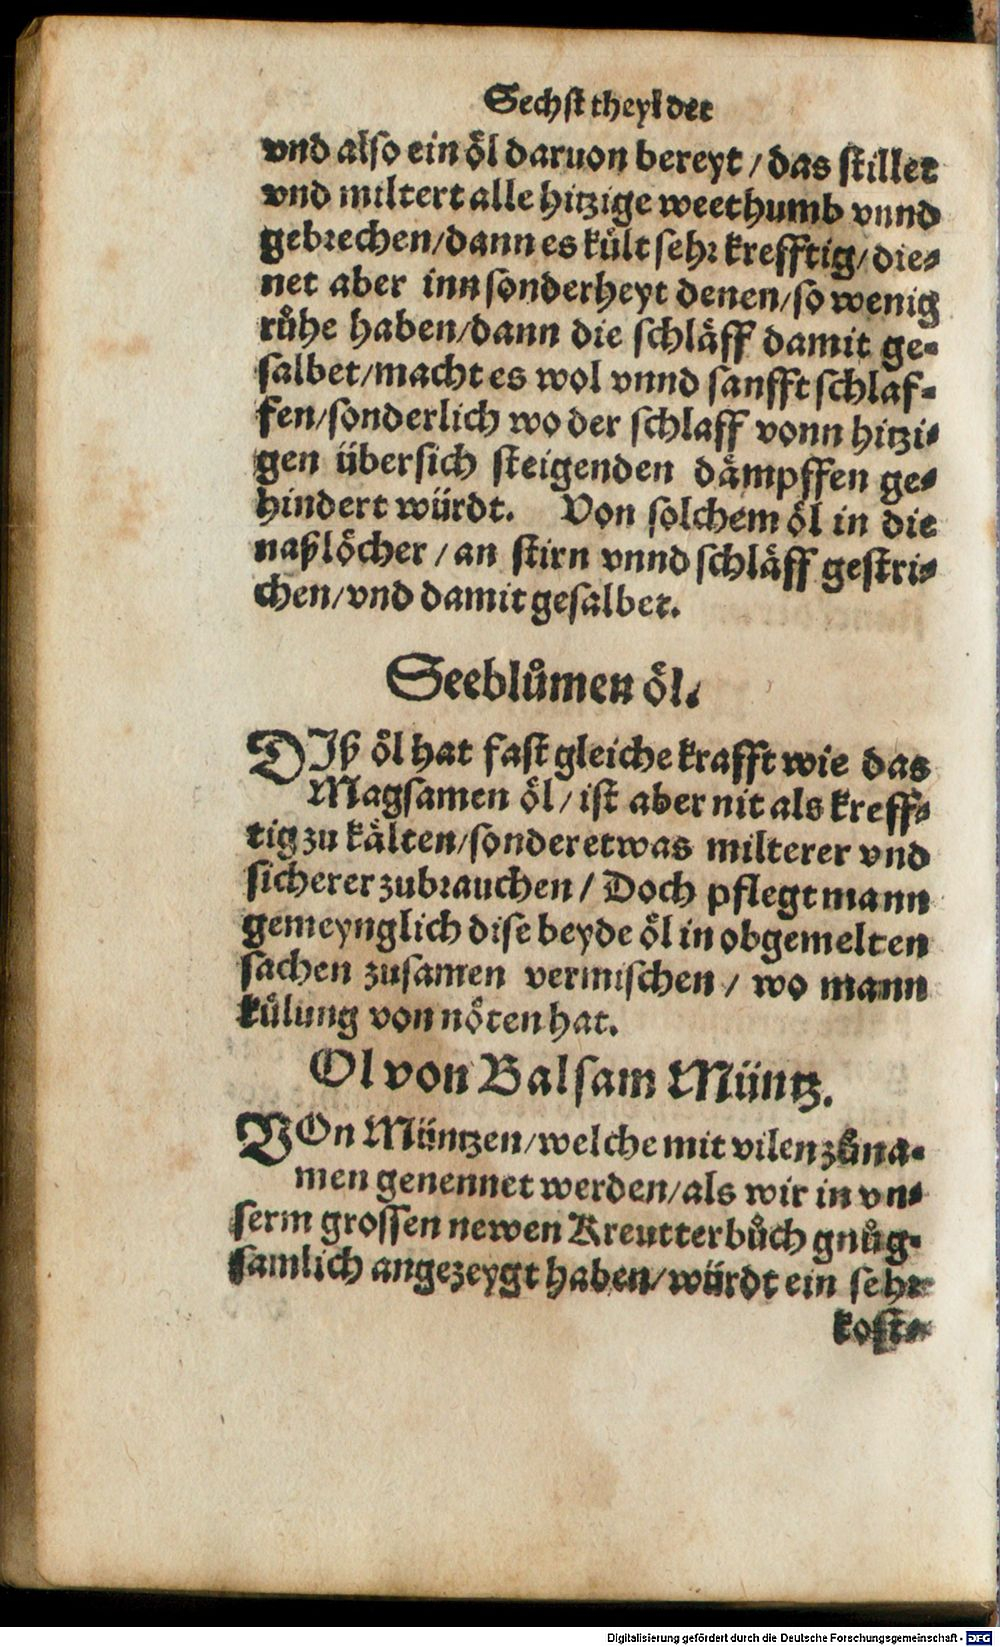 Sechst theyl der
vnd also ein öl daruon bereyt / das stillet
vnd miltert alle hitzige weethumb vnnd
gebrechen/dann es kült sehr krefftig/ die⸗
net aber inn sonderheyt denen/so wenig
růhe haben/dann die schläff damit ge⸗
salbet/macht es wol vnnd sanfft schlaf⸗
fen/sonderlich wo der schlaff vonn hitzi⸗
gen übersich steigenden dämpffen ge⸗
hindert würdt. Von solchem öl in die
naßlöcher / an stirn vnnd schläff gestri⸗
chen/vnd damit gesalbet.
Seeblůmen öl.
DIß öl hat fast gleiche krafft wie das
Magsamen öl / ist aber nit als kreff⸗
tig zu kälten/sonder etwas milterer vnd
sicherer zubrauchen / Doch pflegt mann
gemeynglich dise beyde öl in obgemelten
sachen zusamen vermischen / wo mann
külung von nöten hat.
Ol von Balsam Müntz.
VOn Müntzen/welche mit vilen zůna⸗
men genennet werden/als wir in vn⸗
serm grossen newen Kreutterbůch gnůg⸗
samlich angezeygt haben/würdt ein sehr
kost⸗
Digitalisierung gefördert durch die Deutsche Forschungsgemeinschaft - DFG